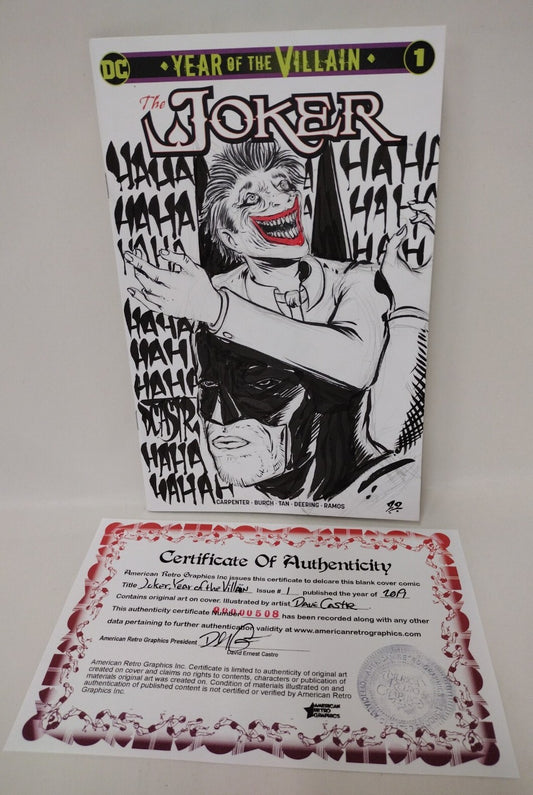 DC
· YEAR OF THE VILLAIN ·
1
The
JOKER
HAHA HAHA
HAHA HA HAHA
HAHA HAHA
HAHA
HAHA
HAHA
DCASTR
HAHA
HAHAH
CARPENTER · BURCH · TAN · DEERING · RAMOS
Certificate Of Authenticity
American Retro Graphics Inc issues this certificate to delcare this blank cover comic
Title Joker, Year of the Villain Issue # 1 published the year of 2019
Contains original art on cover. Illustrated by artist Dave Castr
This authenticity certificate Number 00000508 has been recorded along with any other
data pertaining to further authentication validity at www.americanretrographics.com
American Retro Graphics President
David Ernest Castro
American Retro Graphics Inc. Certificate is limited to authenticity of original art
created on cover and claims no rights to contents, characters or publication of
materials original art was created on. Condition of materials illustrated on and
authentication of published content is not certified or verified by American Retro
Graphics Inc.
AMERICAN
RETRO
GRAPHICS